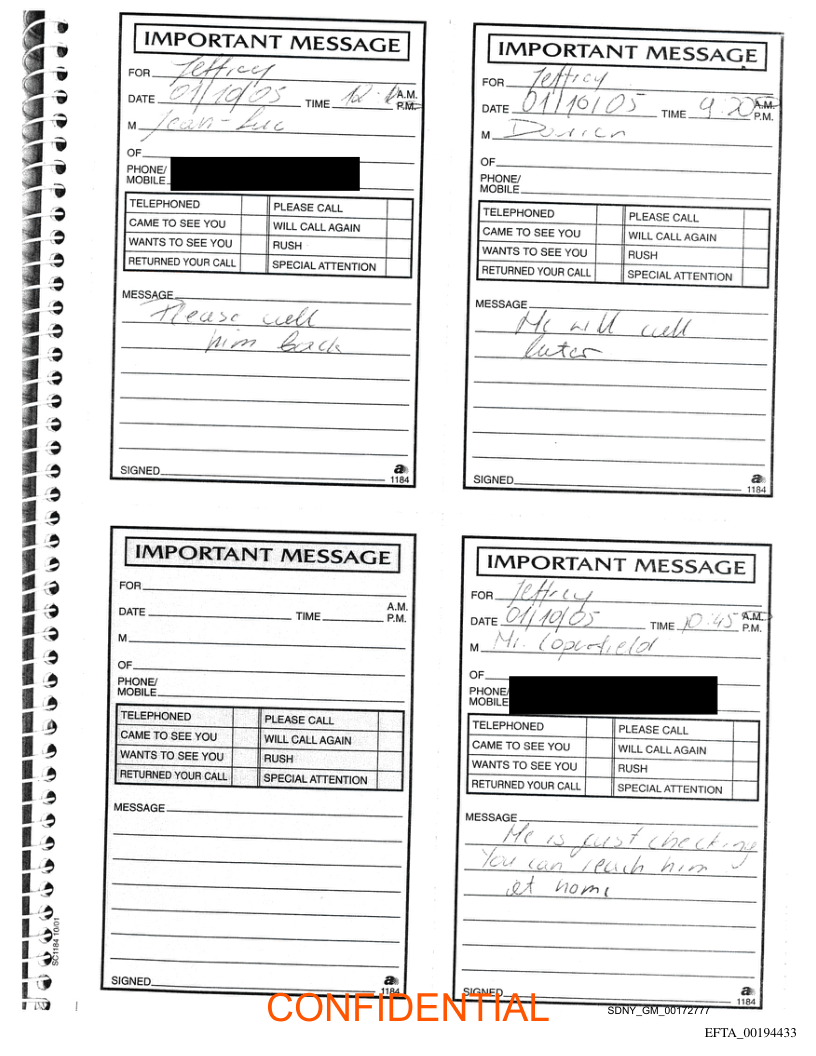 IMPORTANT MESSAGE
FOR Jeffrey
DATE 01/10/05 TIME 12: A.M.
P.M.
M Jean-Luc
OF
PHONE/
MOBILE
TELEPHONED PLEASE CALL
CAME TO SEE YOU WILL CALL AGAIN
WANTS TO SEE YOU RUSH
RETURNED YOUR CALL SPECIAL ATTENTION
MESSAGE
Please call
him back
SIGNED
a
1184
IMPORTANT MESSAGE
FOR Jeffrey
DATE 01/10/05 TIME 9:20 A.M.
P.M.
M
OF
PHONE/
MOBILE
TELEPHONED PLEASE CALL
CAME TO SEE YOU WILL CALL AGAIN
WANTS TO SEE YOU RUSH
RETURNED YOUR CALL SPECIAL ATTENTION
MESSAGE
He will call
later
SIGNED
a
1184
IMPORTANT MESSAGE
FOR
DATE TIME A.M.
P.M.
M
OF
PHONE/
MOBILE
TELEPHONED PLEASE CALL
CAME TO SEE YOU WILL CALL AGAIN
WANTS TO SEE YOU RUSH
RETURNED YOUR CALL SPECIAL ATTENTION
MESSAGE
SIGNED
a
1184
IMPORTANT MESSAGE
FOR Jeffrey
DATE 01/10/05 TIME 10:45 A.M.
P.M.
M Mr. Copperfield
OF
PHONE/
MOBILE
TELEPHONED PLEASE CALL
CAME TO SEE YOU WILL CALL AGAIN
WANTS TO SEE YOU RUSH
RETURNED YOUR CALL SPECIAL ATTENTION
MESSAGE
He is just checking
You can reach him
at home
SIGNED
a
1184
SC1184 10/01
CONFIDENTIAL
SDNY_GM_00172777
EFTA_00194433